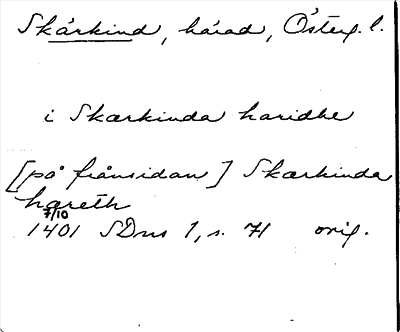 Skärkind, härad, Österg. l.
i Skærkinda haridhe
[på frånsidan] Skærkinda
hæreth
7/10
1401 SDns 1, s. 71 orig.